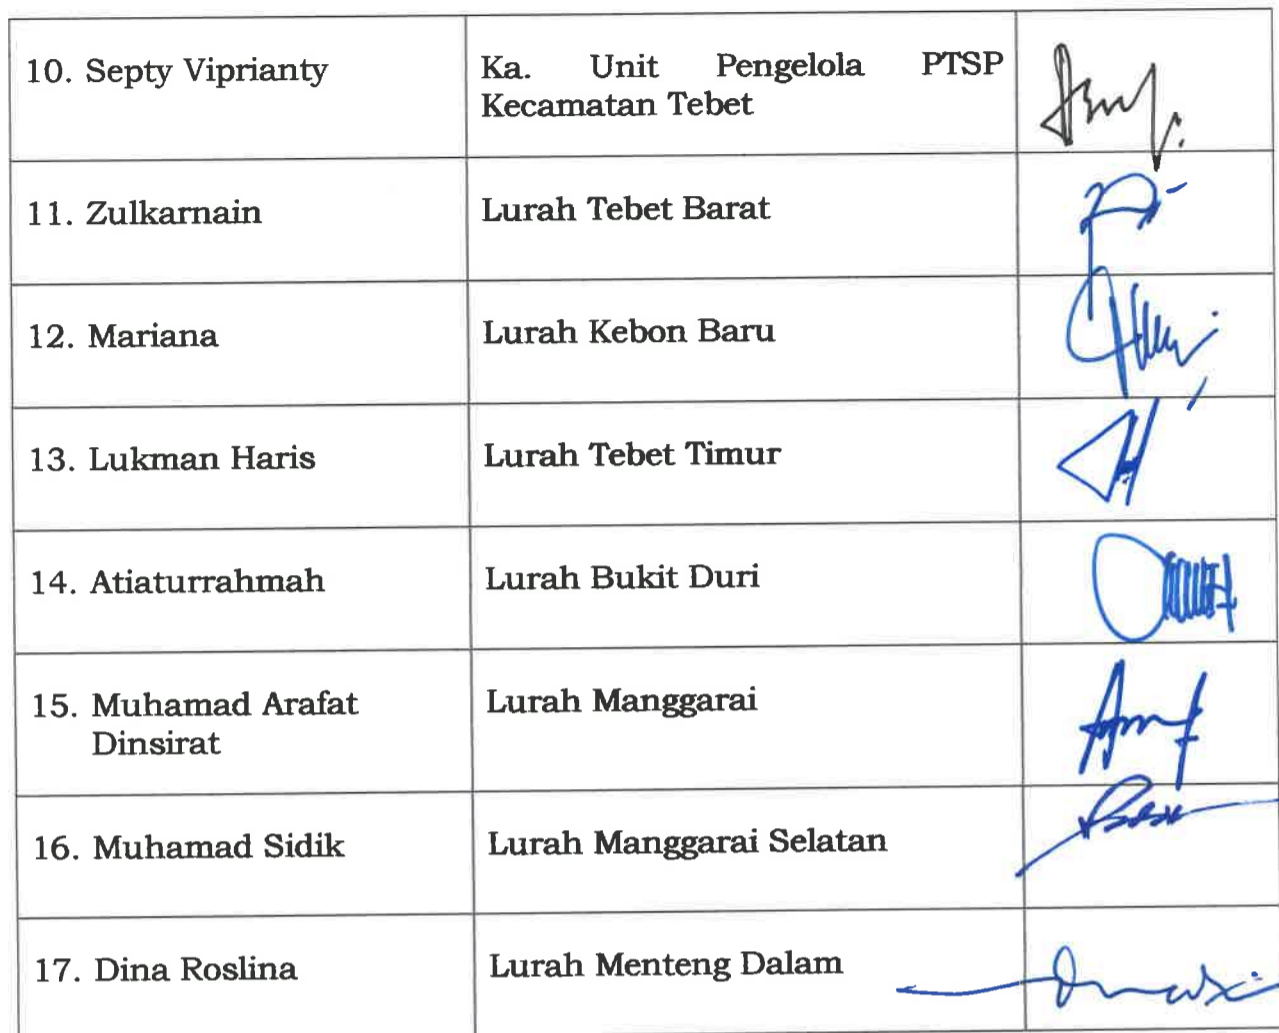 10. Septy Viprianty
Ka. Unit Pengelola PTSP
Kecamatan Tebet
11. Zulkarnain
Lurah Tebet Barat
12. Mariana
Lurah Kebon Baru
13. Lukman Haris
Lurah Tebet Timur
14. Atiaturrahmah
Lurah Bukit Duri
15. Muhamad Arafat
Dinsirat
Lurah Manggarai
16. Muhamad Sidik
Lurah Manggarai Selatan
17. Dina Roslina
Lurah Menteng Dalam